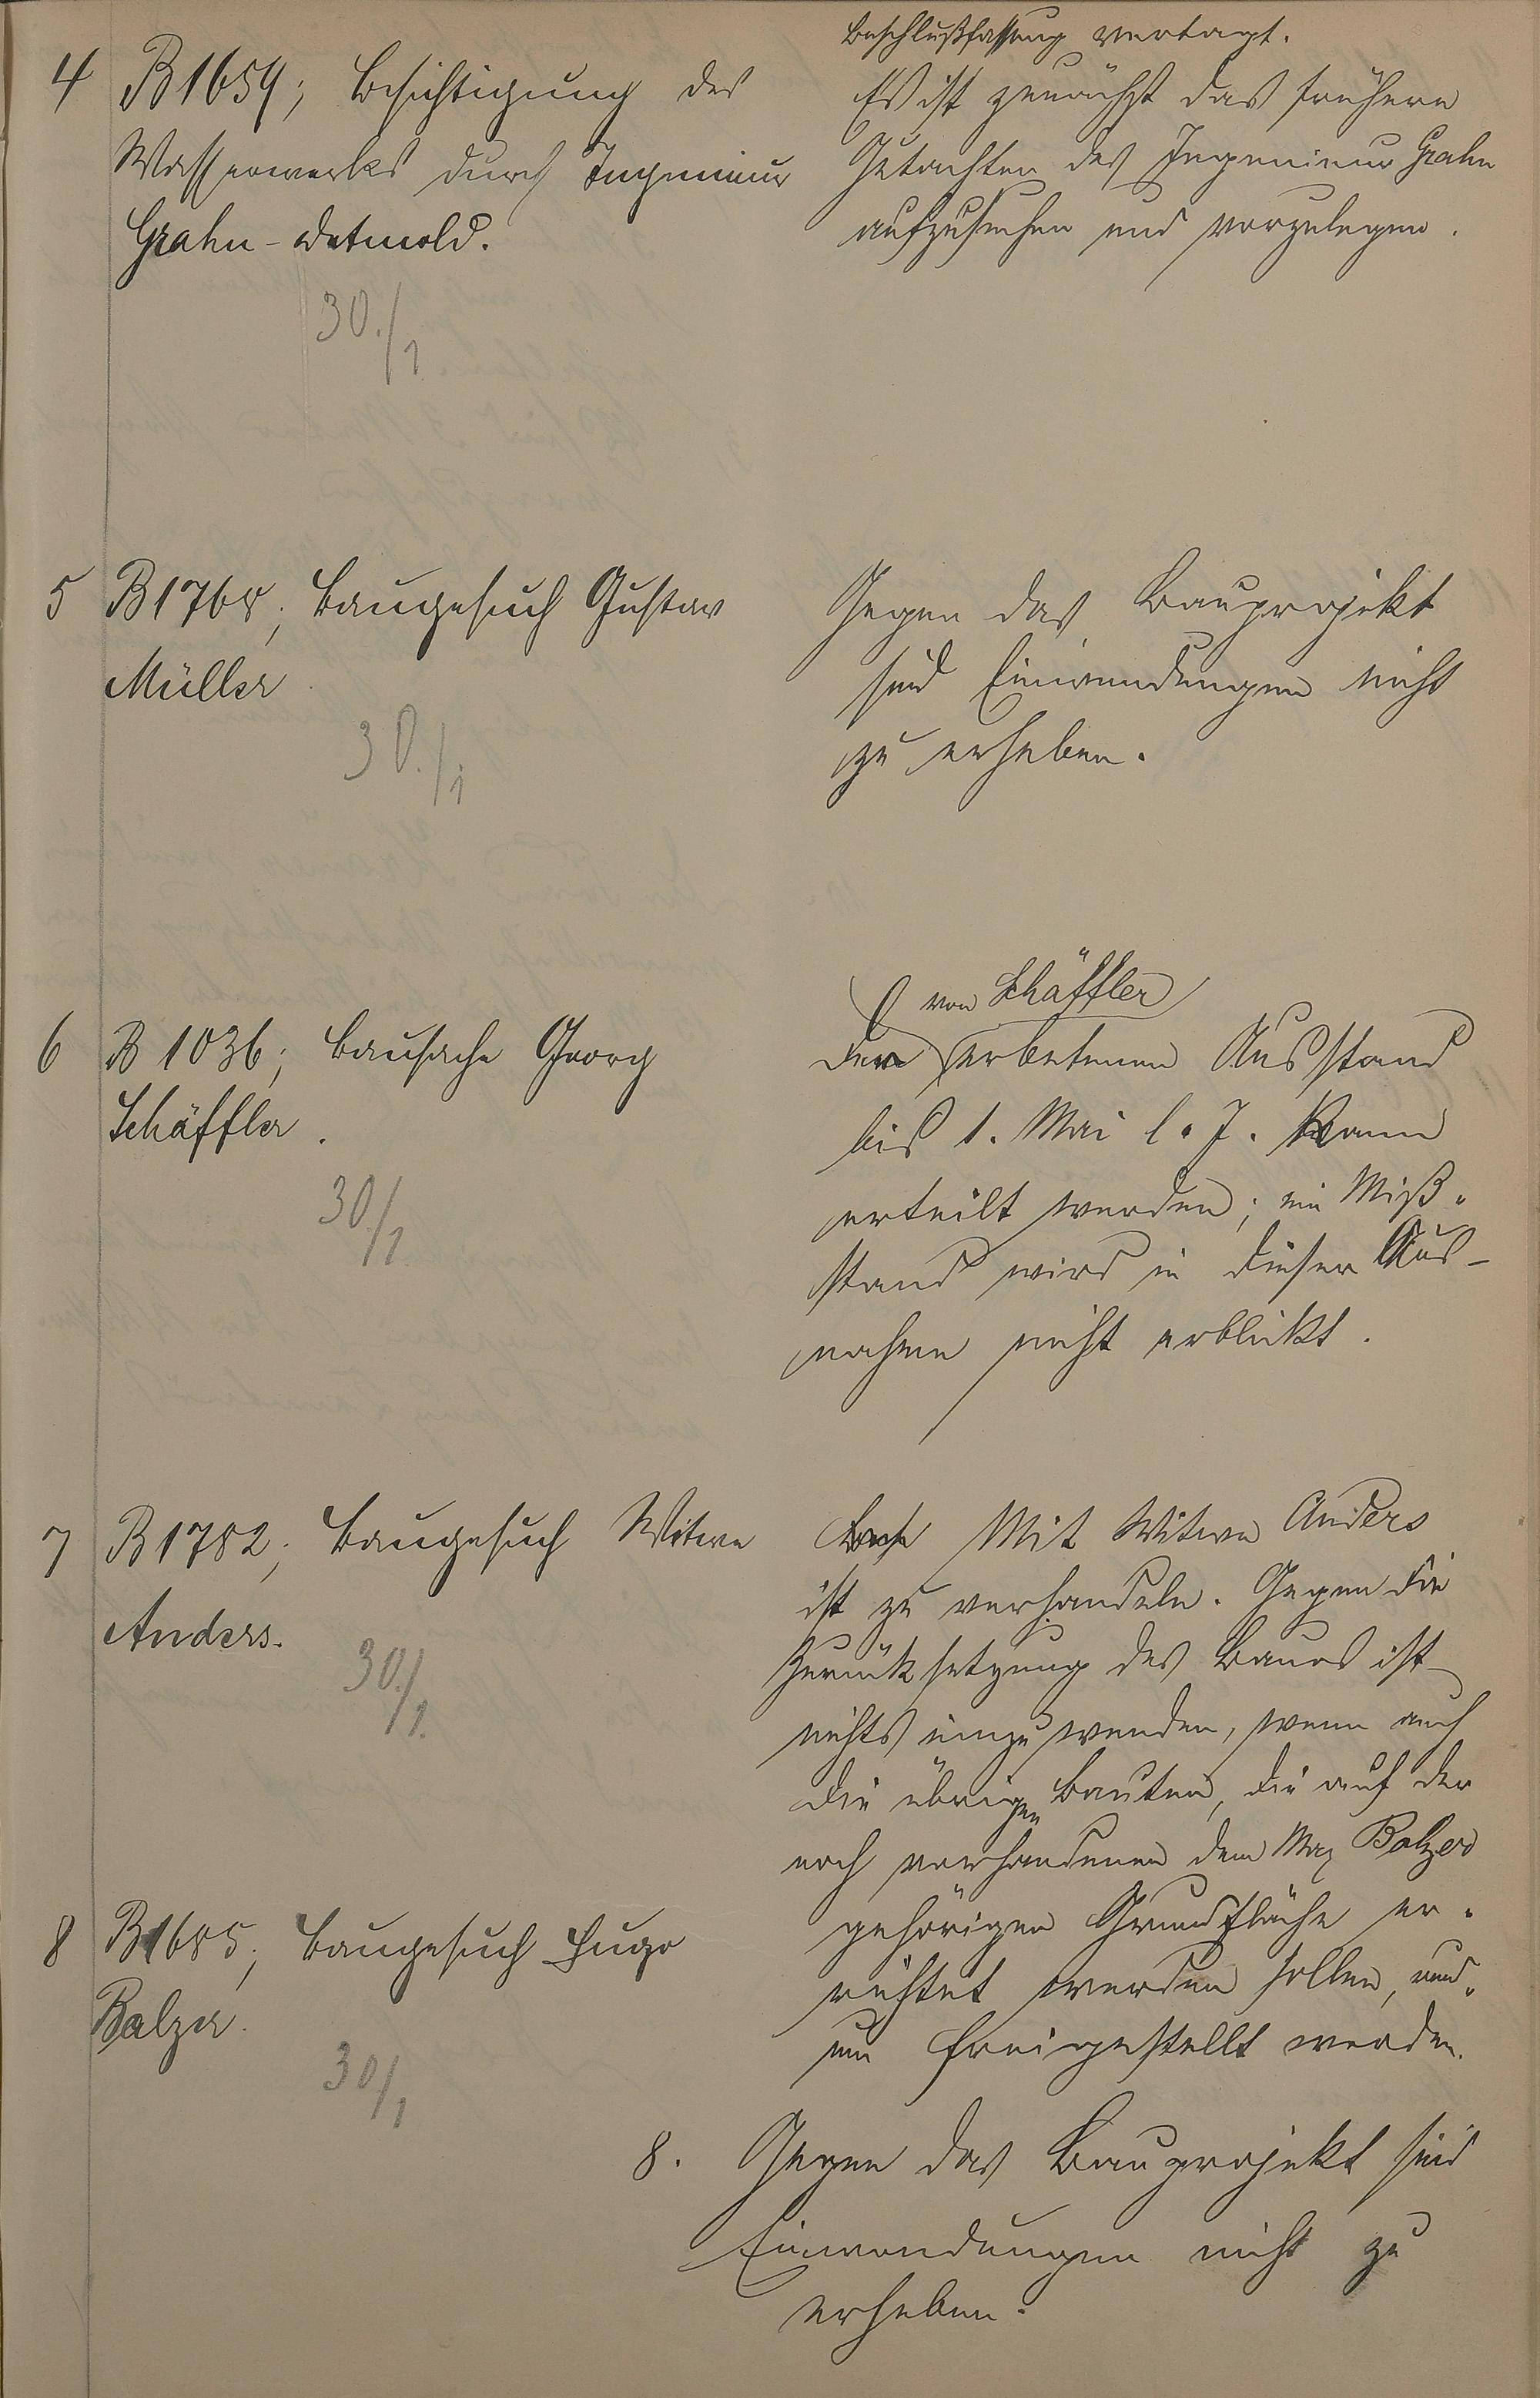 Beschlußfassung vertagt.
4 B 1659; Besichtigung des
Wasserwerks durch Ingenieur
Grahn-Detmold.
30./1.
Es ist zunächst das frühere
Gutachten des Ingenieur Grahn
aufzusuchen und vorzulegen.
5 B 1768; Baugesuch Gustav
Müller.
30./1
Gegen das Bauprojekt
sind Einwendungen nicht
zu erheben.
6 B 1036; Bausache Georg
Schäffler.
30/1.
von Schäffler
Den erbetenen Ausstand
bis 1. Mai l. J. kann
erteilt werden; ein Miß-
stand wird in dieser Aus-
nahme nicht erblickt.
7 B 1782; Baugesuch Witwe
Anders.
30./1.
Mit Witwe Anders
ist zu verhandeln. Gegen die
Zurücksetzung des Baues ist
nichts einzuwenden, wenn auch
die übrigen Bauten, die auf der
noch vorhandenen dem Max Balzer
gehörigen Grundfläche er-
richtet werden sollen,
freigestellt werden.
8 B 1685; Baugesuch Hugo
Balzer.
30/1
8. Gegen das Bauprojekt sind
Einwendungen nicht zu
erheben.